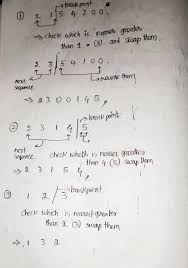 ① → breakpoint
2 1 5 4 3 0 0.
→ check which is nearer greater
than 1 . (3) and swap them.
2 3 / 5 4 1 0 0.
next sequence → reverse them
→ 2 3 0 0 1 4 5,
② → break point
1 2 3 1 4 / 5
next sequence check which is nearer greater
than 4 (5) swap them
→ 2 3 1 5 4,
③ 1 2 / 3 → breakpoint
check which is nearest greater
than 2 (3) swap them
→ 1 3 2